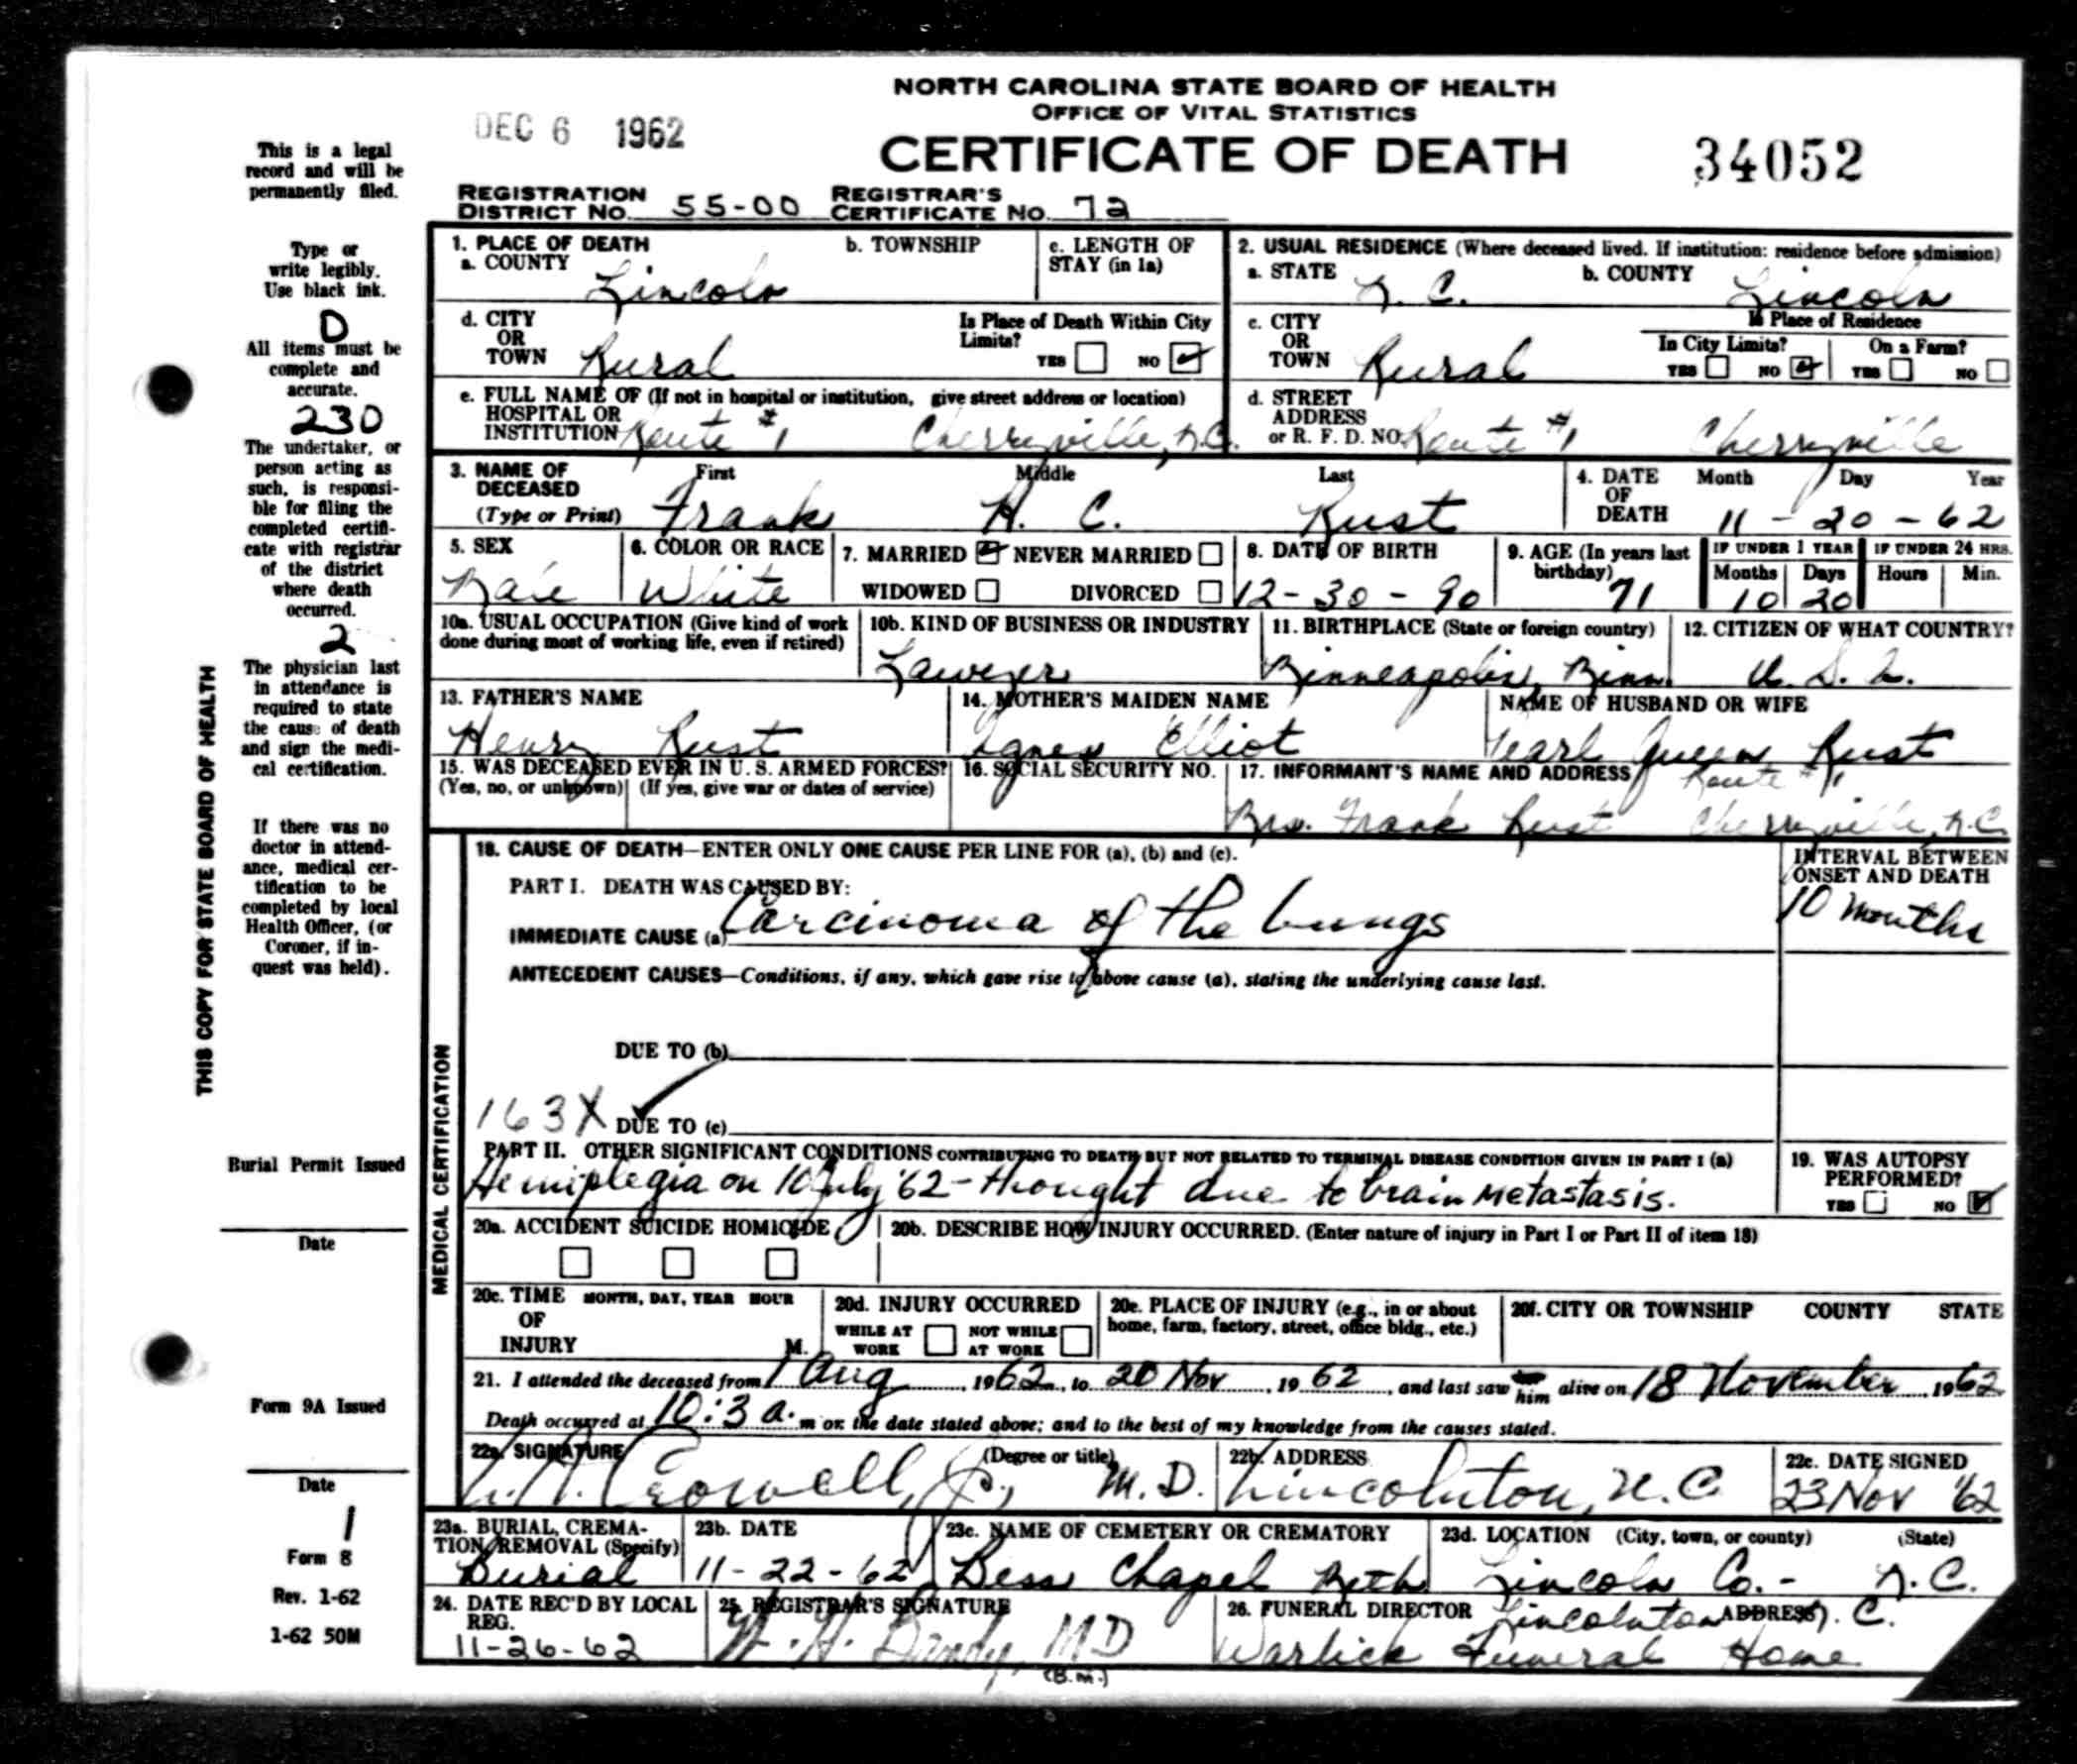 NORTH CAROLINA STATE BOARD OF HEALTH
OFFICE OF VITAL STATISTICS
DEC 6 1962
CERTIFICATE OF DEATH
34052
REGISTRATION DISTRICT NO. 55-00 REGISTRAR'S CERTIFICATE NO. 72
This is a legal
record and will be
permanently filed.
Type or
write legibly.
Use black ink.
D
All items must be
complete and
accurate.
230
The undertaker, or
person acting as
such, is responsi-
ble for filing the
completed certifi-
cate with registrar
of the district
where death
occurred.
2
The physician last
in attendance is
required to state
the cause of death
and sign the medi-
cal certification.
If there was no
doctor in attend-
ance, medical cer-
tification to be
completed by local
Health Officer, (or
Coroner, if in-
quest was held).
Burial Permit Issued
Date
Form 9A Issued
Date
1
Form 8
Rev. 1-62
1-62 50M
THIS COPY FOR STATE BOARD OF HEALTH
1. PLACE OF DEATH
a. COUNTY Lincoln
b. TOWNSHIP
c. LENGTH OF STAY (in 1a)
2. USUAL RESIDENCE (Where deceased lived. If institution: residence before admission)
a. STATE N. C.
b. COUNTY Lincoln
d. CITY OR TOWN Rural
Is Place of Death Within City Limits?
YES NO
c. CITY OR TOWN Rural
Is Place of Residence
In City Limits? On a Farm?
YES NO YES NO
e. FULL NAME OF (If not in hospital or institution, give street address or location)
HOSPITAL OR
INSTITUTION Route #1 Cherryville, N.C.
d. STREET ADDRESS or R. F. D. NO. Route #1 Cherryville
3. NAME OF DECEASED (Type or Print)
First Middle Last
Frank H. C. Rust
4. DATE OF DEATH Month Day Year
11-20-62
5. SEX Male
6. COLOR OR RACE White
7. MARRIED NEVER MARRIED
WIDOWED DIVORCED
8. DATE OF BIRTH 12-30-90
9. AGE (In years last birthday) 71
IF UNDER 1 YEAR IF UNDER 24 HRS.
Months Days Hours Min.
10 20
10a. USUAL OCCUPATION (Give kind of work done during most of working life, even if retired)
10b. KIND OF BUSINESS OR INDUSTRY
Lawyer
11. BIRTHPLACE (State or foreign country)
Minneapolis, Minn.
12. CITIZEN OF WHAT COUNTRY?
U. S. A.
13. FATHER'S NAME
Henry Rust
14. MOTHER'S MAIDEN NAME
Agnes Elliot
NAME OF HUSBAND OR WIFE
Pearl Queen Rust
15. WAS DECEASED EVER IN U. S. ARMED FORCES?
(Yes, no, or unknown) (If yes, give war or dates of service)
16. SOCIAL SECURITY NO.
17. INFORMANT'S NAME AND ADDRESS Route #1
Mrs. Frank Rust Cherryville, N.C.
MEDICAL CERTIFICATION
18. CAUSE OF DEATH—ENTER ONLY ONE CAUSE PER LINE FOR (a), (b) and (c).
INTERVAL BETWEEN ONSET AND DEATH
PART I. DEATH WAS CAUSED BY:
IMMEDIATE CAUSE (a) Carcinoma of the lungs
10 months
ANTECEDENT CAUSES—Conditions, if any, which gave rise to above cause (a), stating the underlying cause last.
DUE TO (b)
163X DUE TO (c)
PART II. OTHER SIGNIFICANT CONDITIONS CONTRIBUTING TO DEATH BUT NOT RELATED TO TERMINAL DISEASE CONDITION GIVEN IN PART I (a)
Hemiplegia on 10 July '62 - thought due to brain metastasis.
19. WAS AUTOPSY PERFORMED?
YES NO
20a. ACCIDENT SUICIDE HOMICIDE
20b. DESCRIBE HOW INJURY OCCURRED. (Enter nature of injury in Part I or Part II of item 18)
20c. TIME OF INJURY MONTH, DAY, YEAR HOUR
M.
20d. INJURY OCCURRED
WHILE AT WORK NOT WHILE AT WORK
20e. PLACE OF INJURY (e.g., in or about home, farm, factory, street, office bldg., etc.)
20f. CITY OR TOWNSHIP COUNTY STATE
21. I attended the deceased from 1 Aug, 1962, to 20 Nov, 1962, and last saw him alive on 18 November 1962
Death occurred at 10:3 a. m on the date stated above; and to the best of my knowledge from the causes stated.
22a. SIGNATURE (Degree or title)
Crowell, Jr., M.D.
22b. ADDRESS
Lincolnton, N.C
22c. DATE SIGNED
23 Nov '62
23a. BURIAL, CREMATION, REMOVAL (Specify)
Burial
23b. DATE
11-22-62
23c. NAME OF CEMETERY OR CREMATORY
Bess Chapel Meth
23d. LOCATION (City, town, or county) (State)
Lincoln Co.- N.C.
24. DATE REC'D BY LOCAL REG.
11-26-62
25. REGISTRAR'S SIGNATURE
MD
(B.M.)
26. FUNERAL DIRECTOR ADDRESS
Lincolnton N. C.
Warlick Funeral Home